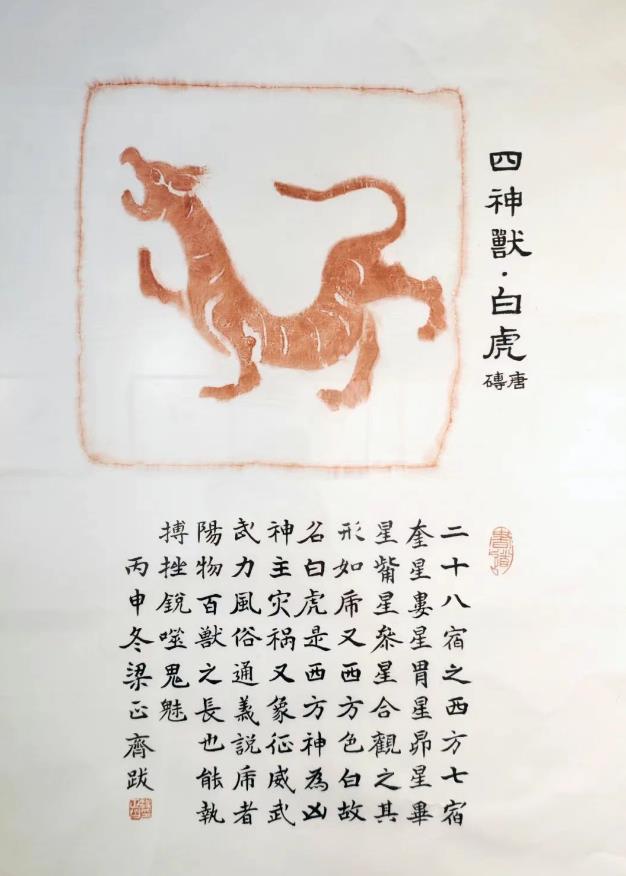 四神獸·白虎
唐磚
書道
二十八宿之西方七宿
奎星婁星胃星昴星畢
星觜星參星合觀之其
形如虎又西方色白故
名白虎是西方神為凶
神主灾祸又象征威武
武力風俗通義説虎者
陽物百獸之長也能執
搏挫銳噬鬼魅
丙申冬梁正齊跋